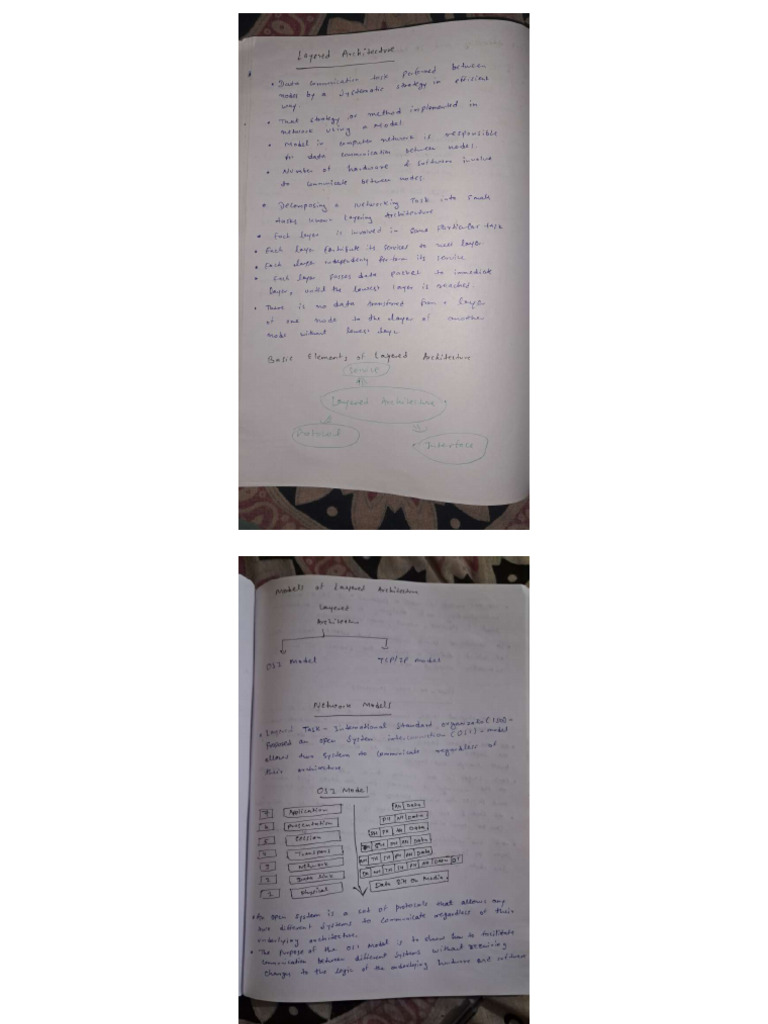 Layered Architecture
• Data communication task performed between
nodes by a systematic strategy in efficient
way.
• That strategy or method implemented in
network using a model.
• Model in computer network is responsible
for data communication between nodes.
• Number of hardware & software involve
to communicate between nodes.
• Decomposing a networking Task into small
tasks known Layering Architecture
• Each layer is involved in some particular task
• Each layer its services to layer
• Each layer independently perform its service.
• Each layer passes data packet to immediate
layer, until the lowest layer is reached.
• There is no data transfered from a layer
of one node to the layer of another
node without lowest layer
Basic Elements of Layered Architecture
Service
Layered Architecture
Protocol
Interface
Models of Layered Architecture
Layered
Architecture
OSI Model TCP/IP model
Network Models
• Layered Task - International Standard (ISO) -
Proposed an open System interconnection (OSI) - model
allows two system to communicate regardless of
their architecture.
OSI Model
7 Application AH Data
6 Presentation PH AH Data
5 Session SH PH AH Data
Transport Data
Network Data
Data link Data
1 Physical Data Bit on Media
• An open system is a set of protocols that allows any
two different systems to communicate regardless of their
underlying architecture.
• The purpose of the OSI Model is to show how to facilitate
communication between different systems without requiring
changes to the logic of the underlying hardware and software